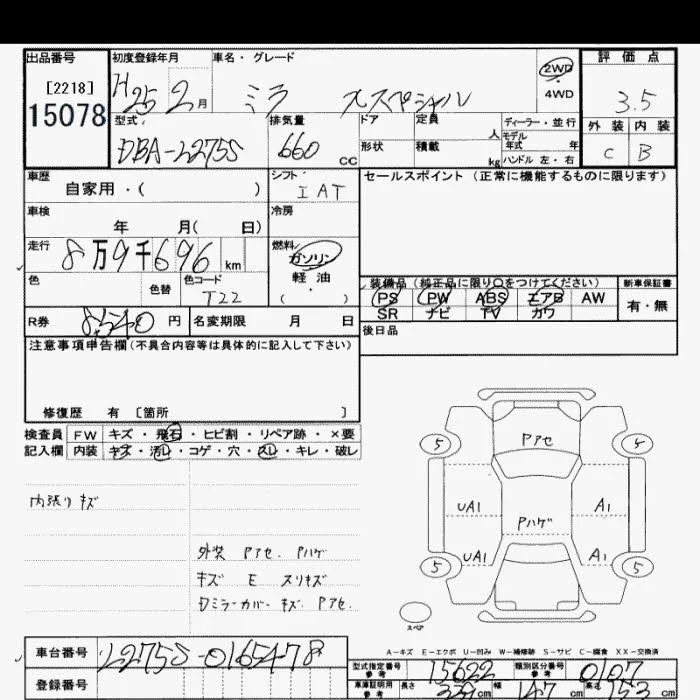 出品番号 初度登録年月 車名・グレード 評価点
[2218] H25 2月 ミラ Xスペシャル 2WD
15078 4WD 3.5
型式 排気量 ドア 定員 ディーラー・並行 外装 内装
人 モデル年式 年
DBA-L275S 660 cc 形状 積載 kg ハンドル 左・右 C B
車歴 シフト セールスポイント(正常に機能するものに限ります)
自家用・( ) I AT
車検 冷房
年 月( 日)
走行 8万9千696 km 燃料 ガソリン
軽油
色 色替 色コード ( ) 装備品(純正品に限り〇をつけてください) 新車保証書
T22 PS PW ABS エアB AW 有・無
SR ナビ TV カワ
R券 8,540円 名変期限 月 日 後日品
注意事項申告欄(不具合内容等は具体的に記入して下さい)
修復歴 有 [箇所 ]
検査員 FW キズ・飛石・ヒビ割・リペア跡・×要
記入欄 内装 キズ・汚レ・コゲ・穴・スレ・キレ・破レ
Pアセ
5 5
内張りキズ
UA1 A1
Pハゲ
外装 Pアセ. Pハゲ
UA1 A1
キズ E スリキズ
5 5
Dミラーカバーキズ Pアセ.
スペア
A-キズ E-エクボ U-凹み W-補修跡 S-サビ C-腐食 XX-交換済
車台番号 L275S-0165478
型式指定番号 参考 15622 類別区分番号 参考 0107
登録番号
車庫証明用 参考 長さ 339cm 幅 147cm 高さ 153cm